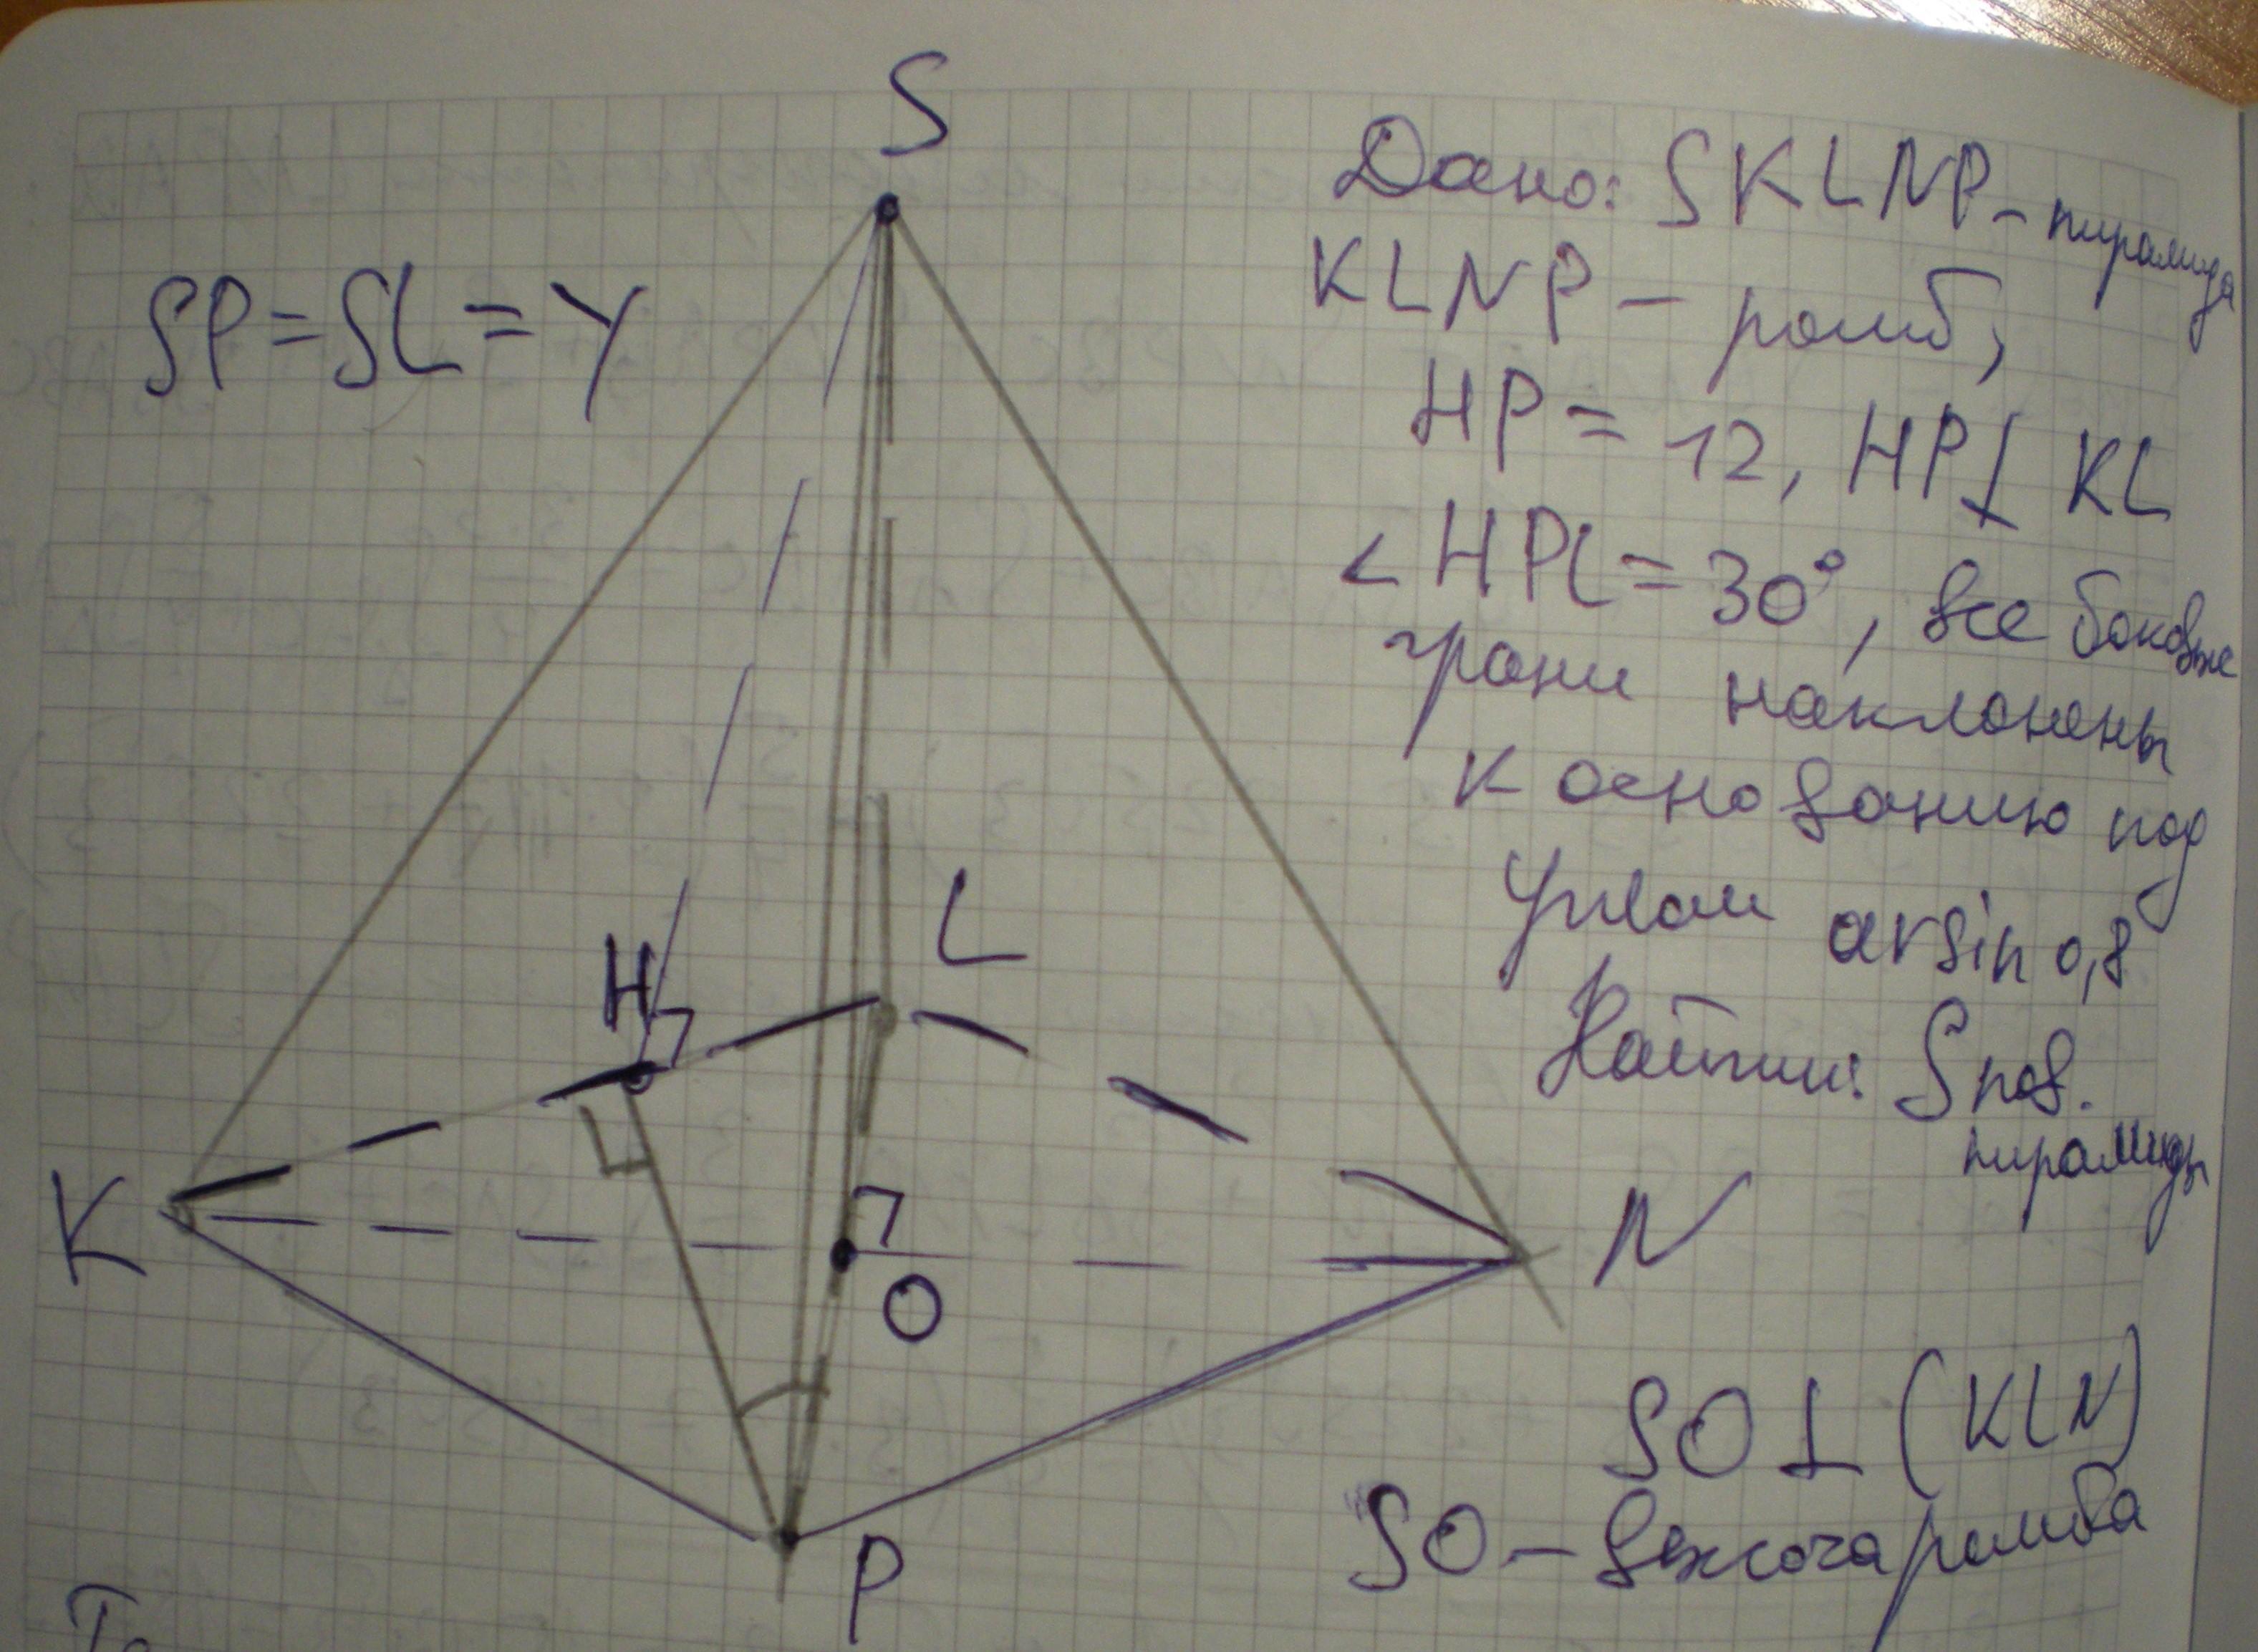 S
SP=SL=Y
Дано: SKLNP - пирамида
KLNP - ромб,
HP = 12, HP ⊥ KL
< HPL = 30°, все боковые
грани наклонены
к основанию под
углом arsin 0,8
Найти: S пов.
пирамиды
L
H
K
N
O
P
SO ⊥ (KLN)
SO - высота ромба